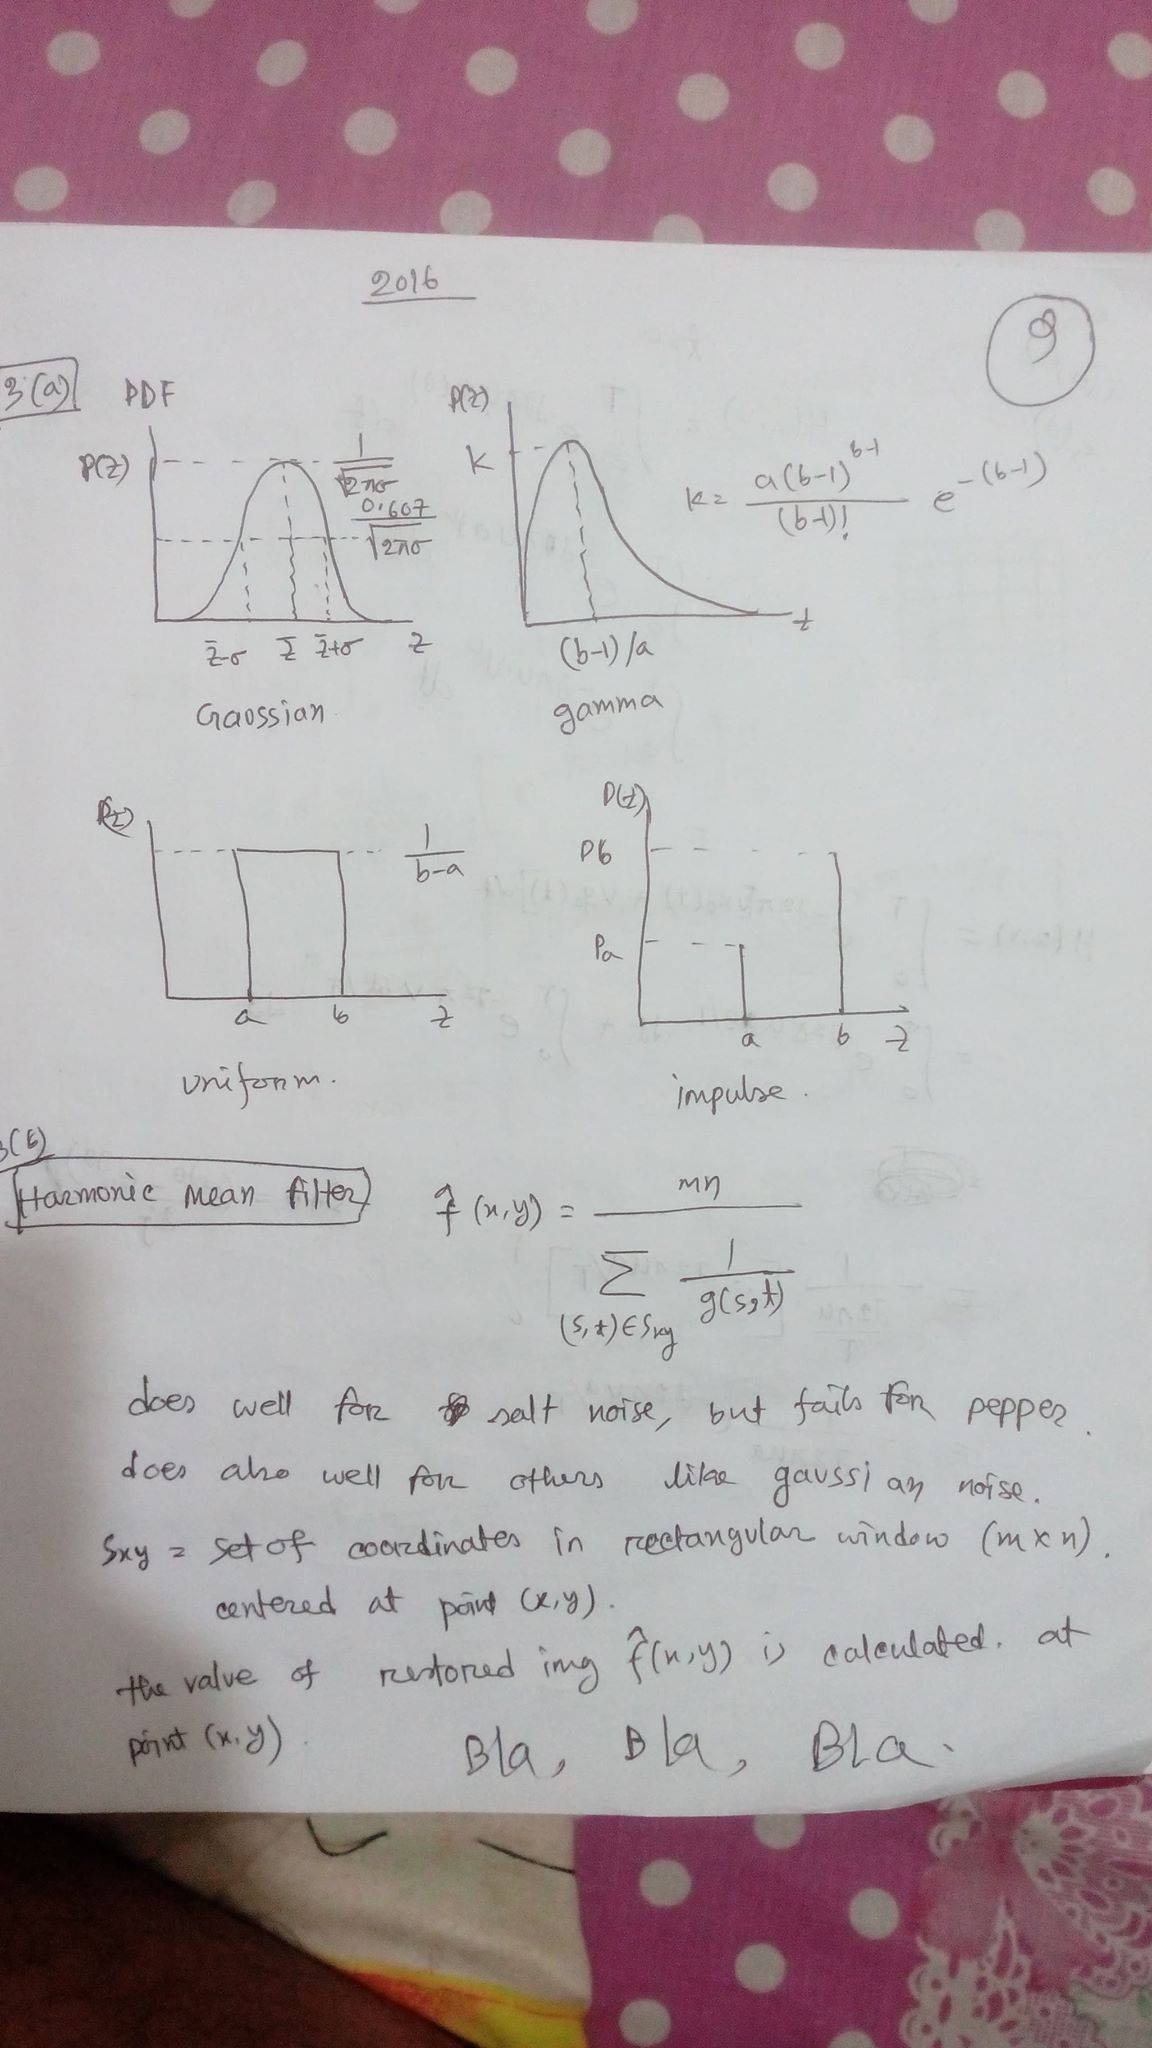 2016
9
3(a) PDF
P(z)
1/√2πσ
0.607/√2πσ
z̄-σ z̄ z̄+σ z
Gaussian
P(z)
K
K = a(b-1)^(b-1)/(b-1)! e^-(b-1)
(b-1)/a z
gamma
P(z)
1/b-a
a b z
uniform.
P(z)
Pb
Pa
a b z
impulse.
3(b)
Harmonic mean filter f̂(x,y) = mn / Σ (s,t)∈Sxy 1/g(s,t)
does well for salt noise, but fails for pepper.
does also well for others like gaussian noise.
Sxy = set of coordinates in rectangular window (m×n).
centered at point (x,y).
the value of restored img f̂(x,y) is calculated. at
point (x,y). Bla, Bla, Bla.